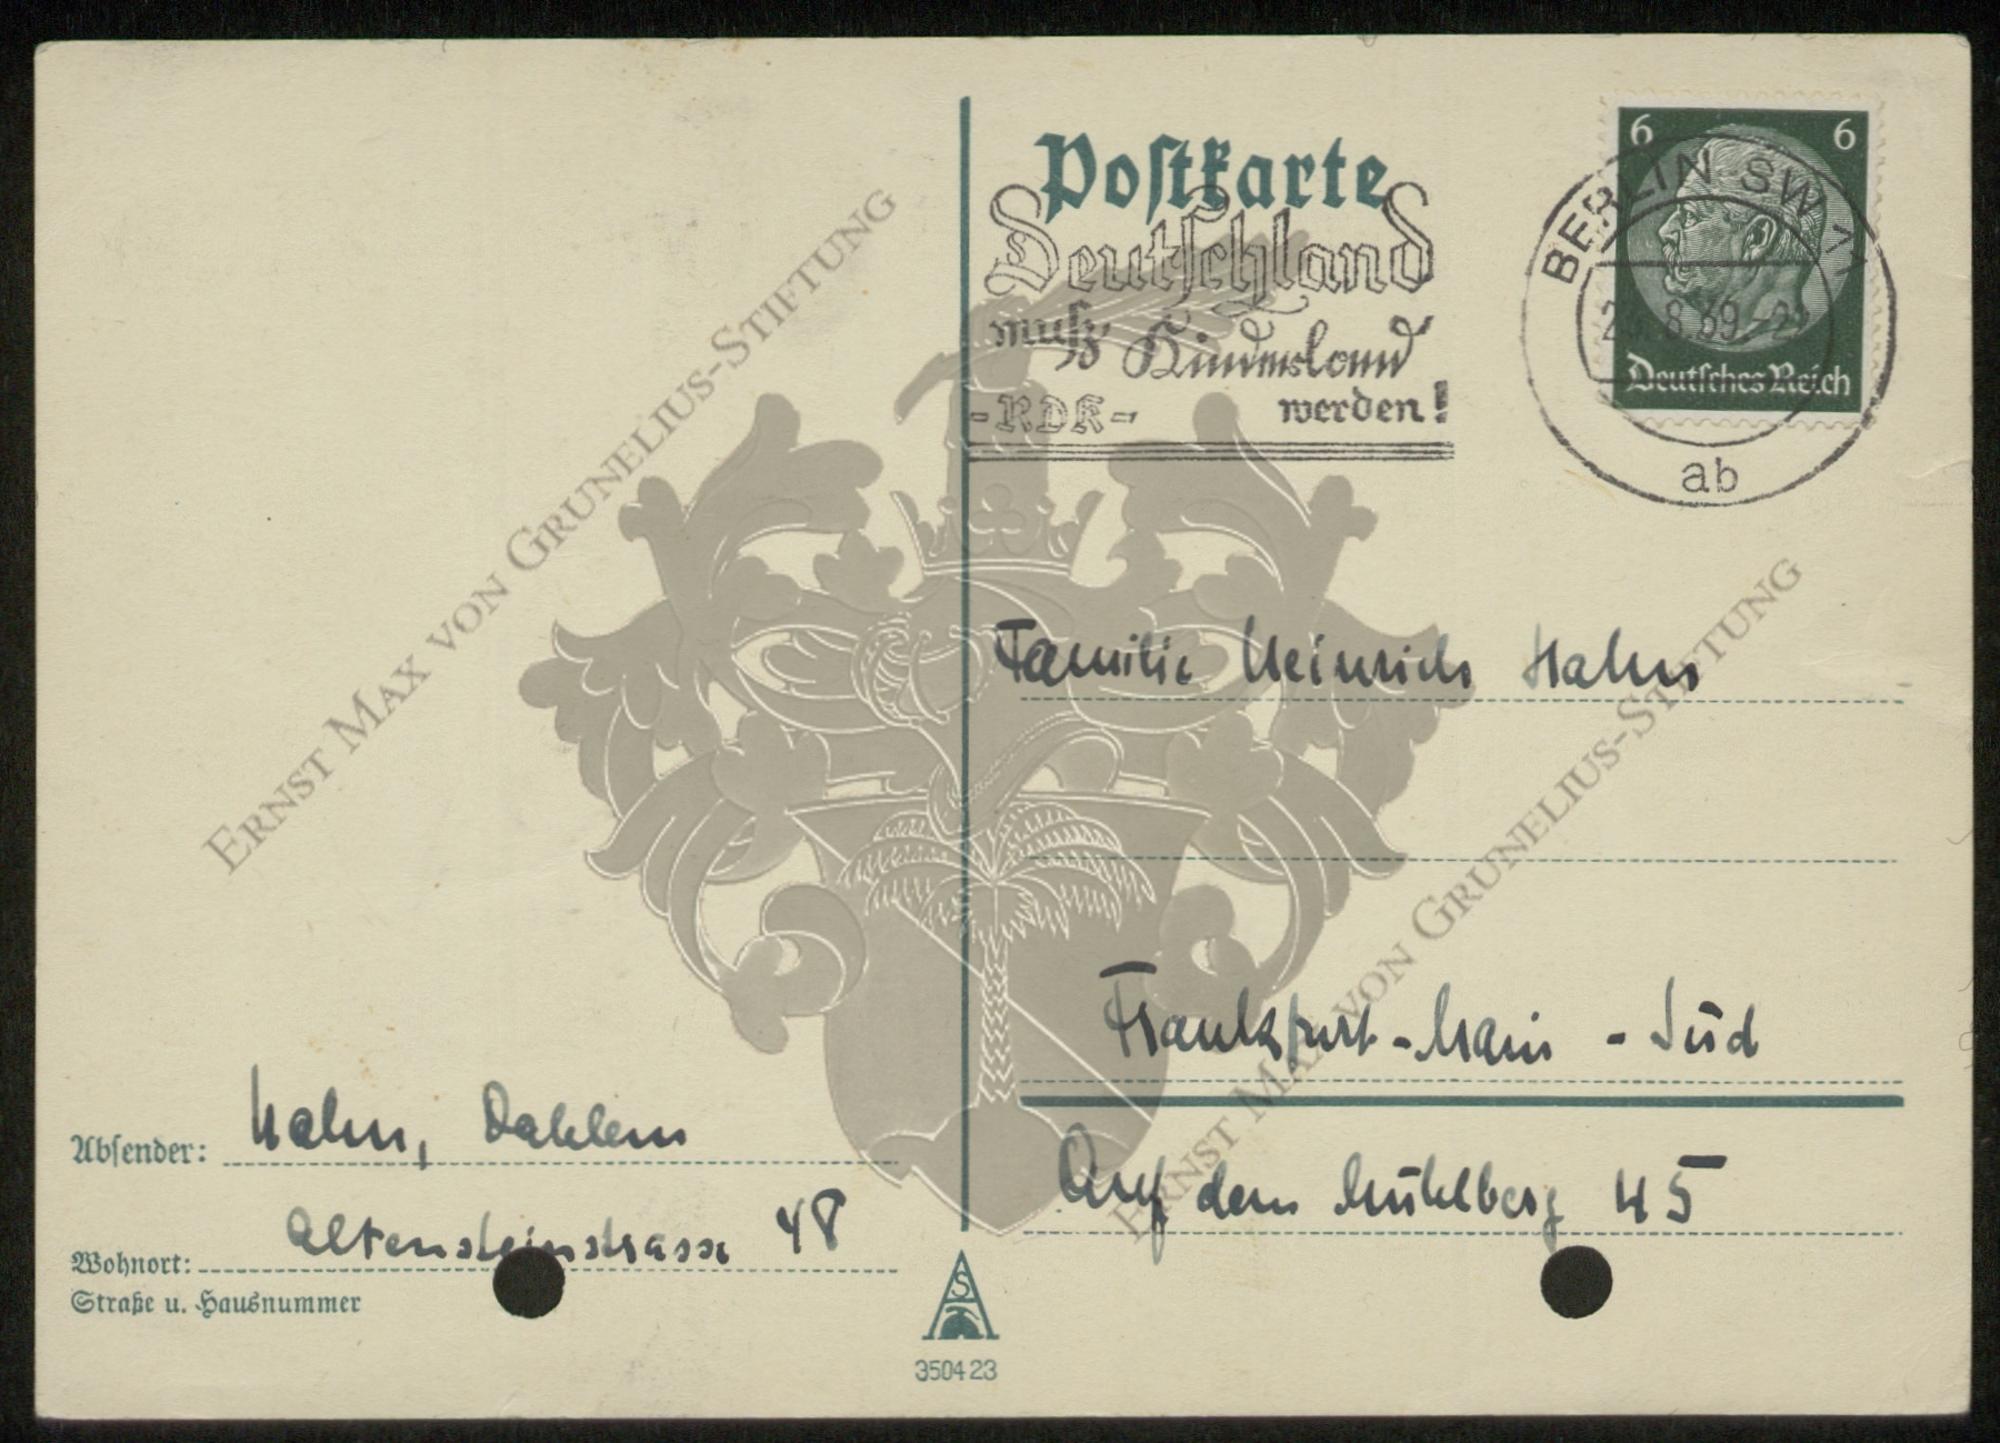 Postkarte
Deutschland
muß Kinderland
-RDK- werden!
6 6
BERLIN SW 11
8.39.
Deutsches Reich
ab
ERNST MAX VON GRUNELIUS-STIFTUNG
ERNST MAX VON GRUNELIUS-STIFTUNG
Familie Heinrich Hahn
Frankfurt-Main - Süd
Auf dem Mühlberg 45
Absender: Hahn, Dahlem
Altensteinstrasse 48
Wohnort:
Straße u. Hausnummer
350423